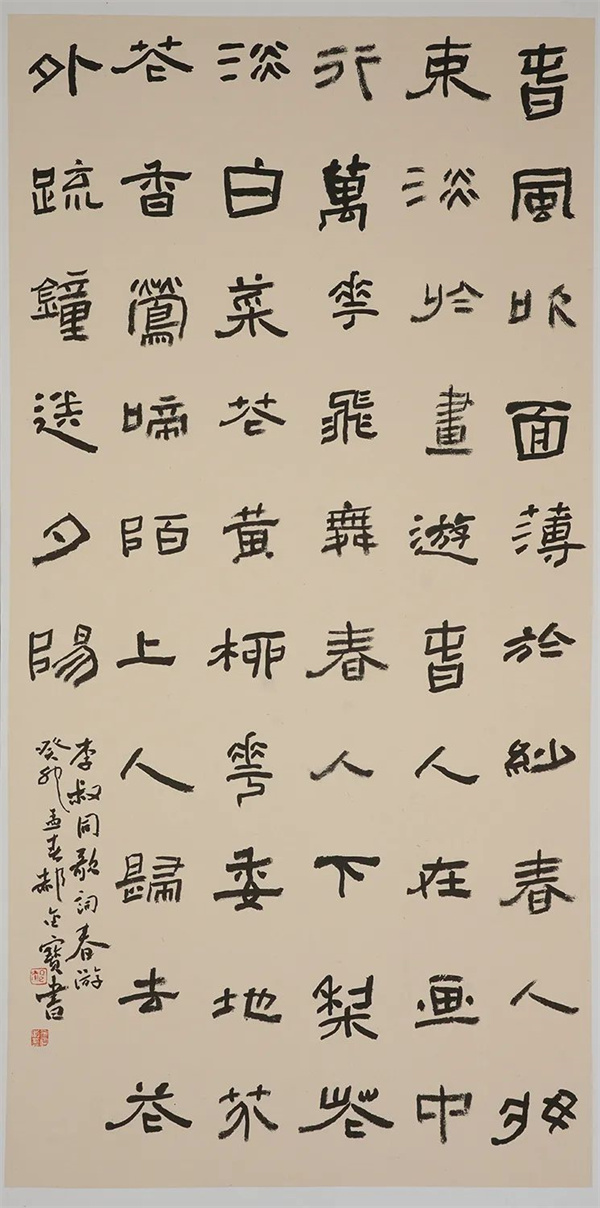 旾風吹面薄於紗春人妝
束淡於畫遊旾人在画中
行萬華飛舞春人下梨花
淡白菜花黄柳華委地芥
花香鶯啼陌上人歸去花
外疏鐘送夕陽
李叔同歌詞春游
癸卯孟春郝金寶書